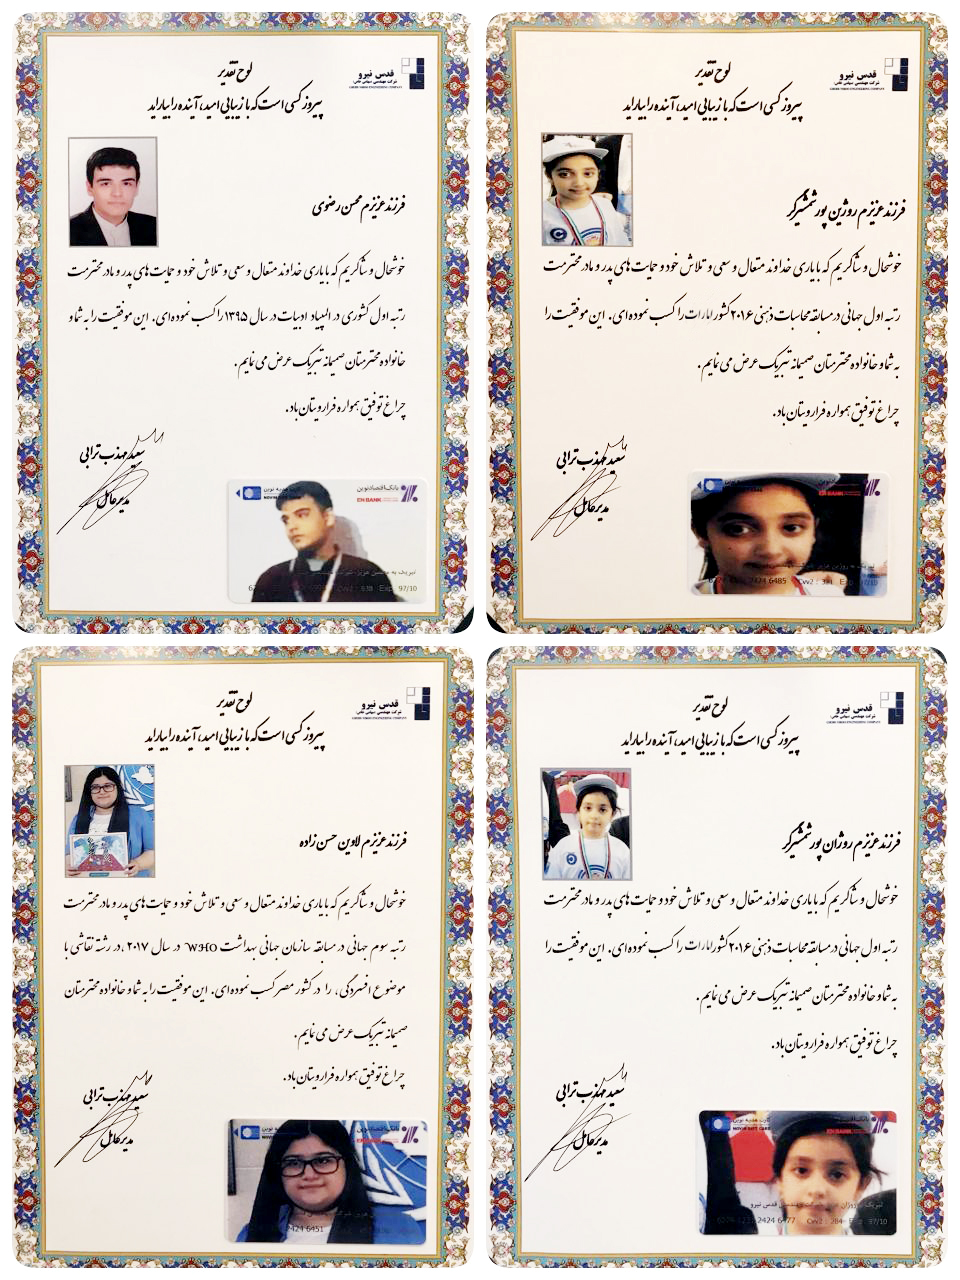 لوح تقدیر
قدس نیرو
شرکت مهندسی (سهامی خاص)
GHODS NIROO ENGINEERING COMPANY
پیروز کسی است که با زیبایی امید، آینده را بیاراید
فرزند عزیزم محسن رضوی
خوشحال و شاکریم که با یاری خداوند متعال و سعی و تلاش خود و حمایت های پدر و مادر محترمت
رتبه اول کشوری در المپیاد ادبیات در سال ۱۳۹۵ را کسب نموده ای. این موفقیت را به شما و
خانواده محترمتان صمیمانه تبریک عرض می نمایم.
چراغ توفیق همواره فرارویتان باد.
سعید مهذب ترابی
مدیرعامل
بانک اقتصادنوین
EN BANK
تبریک به محسن عزیز
Cvv2 : 938 Exp: 97/10
لوح تقدیر
قدس نیرو
شرکت مهندسی (سهامی خاص)
GHODS NIROO ENGINEERING COMPANY
پیروز کسی است که با زیبایی امید، آینده را بیاراید
فرزند عزیزم روژین پورشمشیرگر
خوشحال و شاکریم که با یاری خداوند متعال و سعی و تلاش خود و حمایت های پدر و مادر محترمت
رتبه اول جهانی در مسابقه محاسبات ذهنی ۲۰۱۶ کشور امارات را کسب نموده ای. این موفقیت را
به شما و خانواده محترمتان صمیمانه تبریک عرض می نمایم.
چراغ توفیق همواره فرارویتان باد.
سعید مهذب ترابی
مدیرعامل
EN BANK
تبریک به روژین عزیز
2424 6485 Cvv2 : 331 Exp: 97/10
لوح تقدیر
قدس نیرو
شرکت مهندسی (سهامی خاص)
GHODS NIROO ENGINEERING COMPANY
پیروز کسی است که با زیبایی امید، آینده را بیاراید
فرزند عزیزم لاوین حسن زاده
خوشحال و شاکریم که با یاری خداوند متعال و سعی و تلاش خود و حمایت های پدر و مادر محترمت
رتبه سوم جهانی در مسابقه سازمان جهانی بهداشت WHO در سال ۲۰۱۷، در رشته نقاشی با
موضوع افسردگی، را در کشور مصر کسب نموده ای. این موفقیت را به شما و خانواده محترمتان
صمیمانه تبریک عرض می نمایم.
چراغ توفیق همواره فرارویتان باد.
سعید مهذب ترابی
مدیرعامل
بانک اقتصادنوین
EN BANK
2424 6451
لوح تقدیر
قدس نیرو
شرکت مهندسی (سهامی خاص)
GHODS NIROO ENGINEERING COMPANY
پیروز کسی است که با زیبایی امید، آینده را بیاراید
فرزند عزیزم روژان پورشمشیرگر
خوشحال و شاکریم که با یاری خداوند متعال و سعی و تلاش خود و حمایت های پدر و مادر محترمت
رتبه اول جهانی در مسابقه محاسبات ذهنی ۲۰۱۶ کشور امارات را کسب نموده ای. این موفقیت را
به شما و خانواده محترمتان صمیمانه تبریک عرض می نمایم.
چراغ توفیق همواره فرارویتان باد.
سعید مهذب ترابی
مدیرعامل
کارت هدیه نوین
NOVIN GIFT CARD
EN BANK
تبریک به روژان عزیز شرکت مهندسی قدس نیرو
2424 6477 Cvv2 : 284 Exp: 97/10